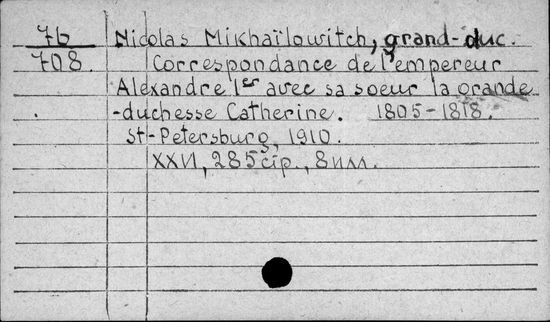 76 Nicolas Mikhaïlowitch, grand-duc.
708. Correspondance de l'empereur
Alexandre Ier avec sa soeur la grande
-duchesse Catherine. 1805-1818.
St-Petersburg, 1910.
XXVI, 285 стр., 8 илл.